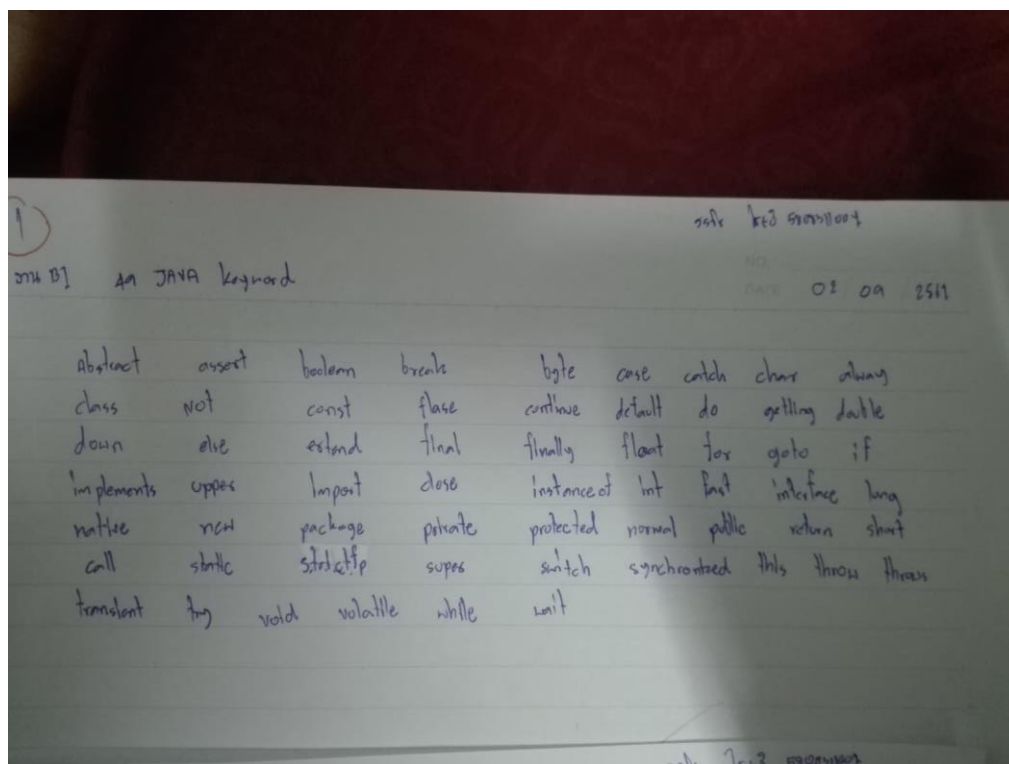 1
งาน B1 หา JAVA keyword
NO.
DATE 02 09 2561
Abstract assert boolean break byte case catch char alway
class Not const flase continue default do getling double
down else extend final finally float for goto if
implements upper Import close instanceof int fast interface long
native new package private protected normal public return short
call static strictfp super switch synchronized this throw throws
transient try void volatile while wait